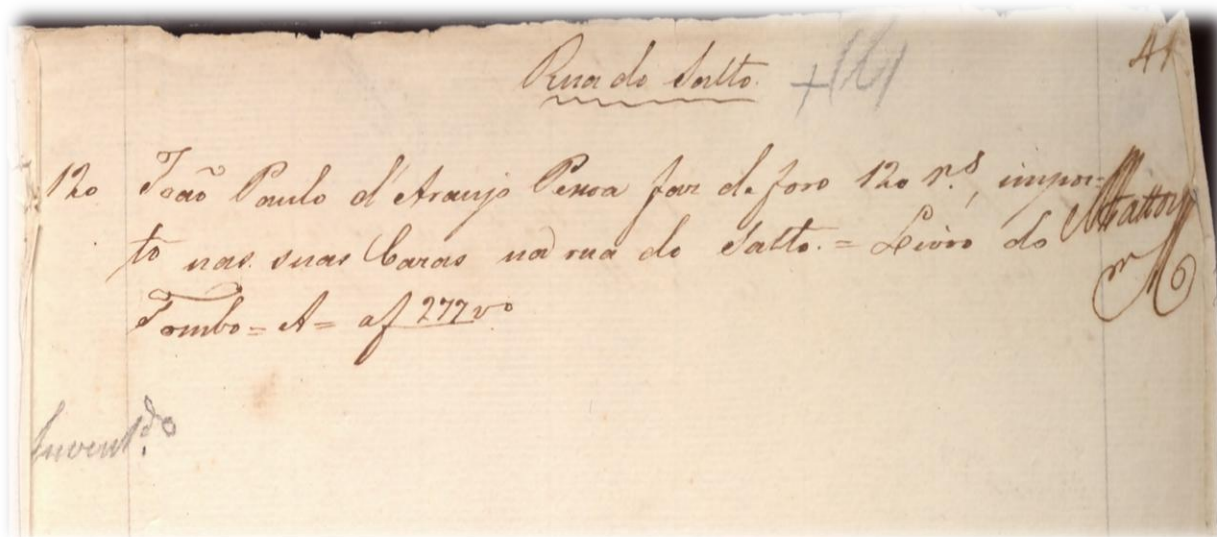 Rua do Salto. +161
41
120 João Paulo d'Araujo Pessoa faz de foro 120 r.s, impos-
to nas suas Cazas na rua do Salto. = Livro do
Tombo = A = af 277 vo
Mattos
Invent.do